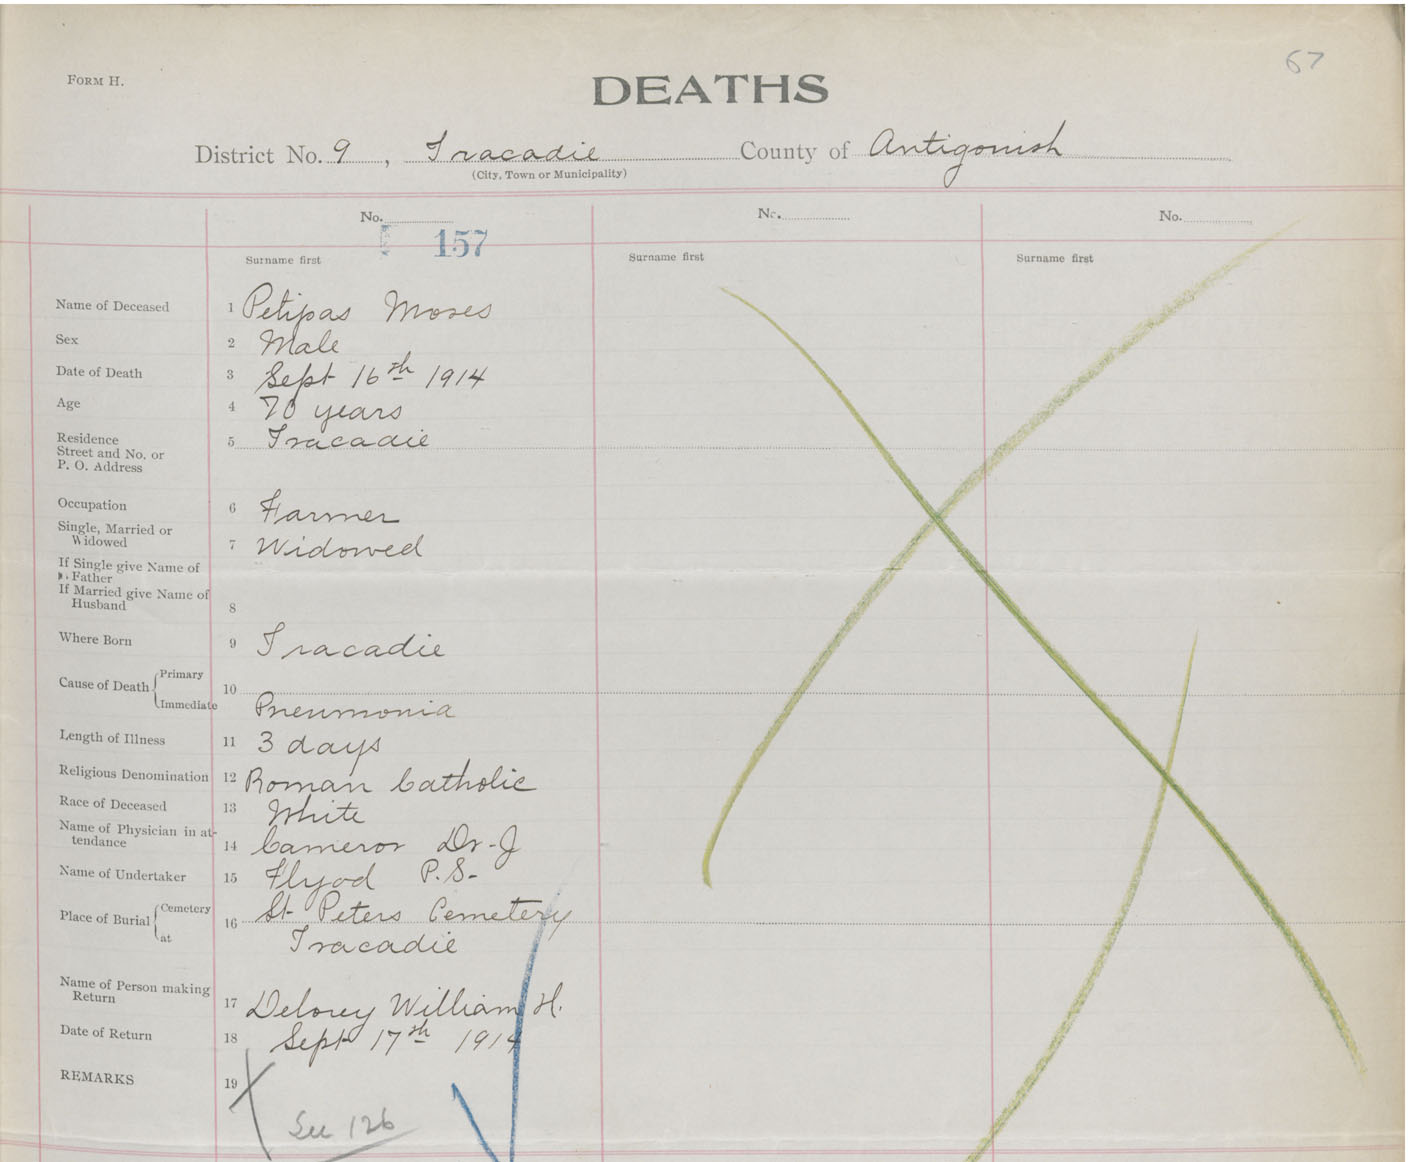 67
FORM H.
DEATHS
District No. 9, Tracadie County of Antigonish
(City, Town or Municipality)
No. No. No.
157
Surname first Surname first Surname first
Name of Deceased 1 Petipas Moses
Sex 2 Male
Date of Death 3 Sept 16th 1914
Age 4 70 years
Residence 5 Tracadie
Street and No. or
P. O. Address
Occupation 6 Farmer
Single, Married or
Widowed 7 Widowed
If Single give Name of
Father
If Married give Name of
Husband 8
Where Born 9 Tracadie
Cause of Death Primary 10
Immediate Pneumonia
Length of Illness 11 3 days
Religious Denomination 12 Roman Catholic
Race of Deceased 13 White
Name of Physician in at-
tendance 14 Cameron Dr. J
Name of Undertaker 15 Flyod P.S.
Place of Burial Cemetery 16 St Peters Cemetery
at Tracadie
Name of Person making
Return 17 Delorey William H.
Date of Return 18 Sept 17th 1914
REMARKS 19
See 126